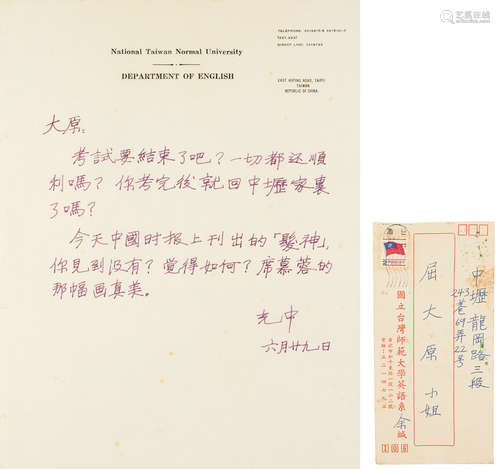 National Taiwan Normal University
DEPARTMENT OF ENGLISH
EAST HOPING ROAD, TAIPEI
TAIWAN
REPUBLIC OF CHINA
大原：
考試要結束了吧？一切都还順
利嗎？你考完後就回中壢家裏
了嗎？
今天中國时报上刊出的「髮神」，
你見到没有？覺得如何？席慕蓉的
那幅画真美。
光中
六月廿九日
中壢龍岡路三段
243巷69弄22号
屈大原小姐
國立台灣師範大學英語系 余緘